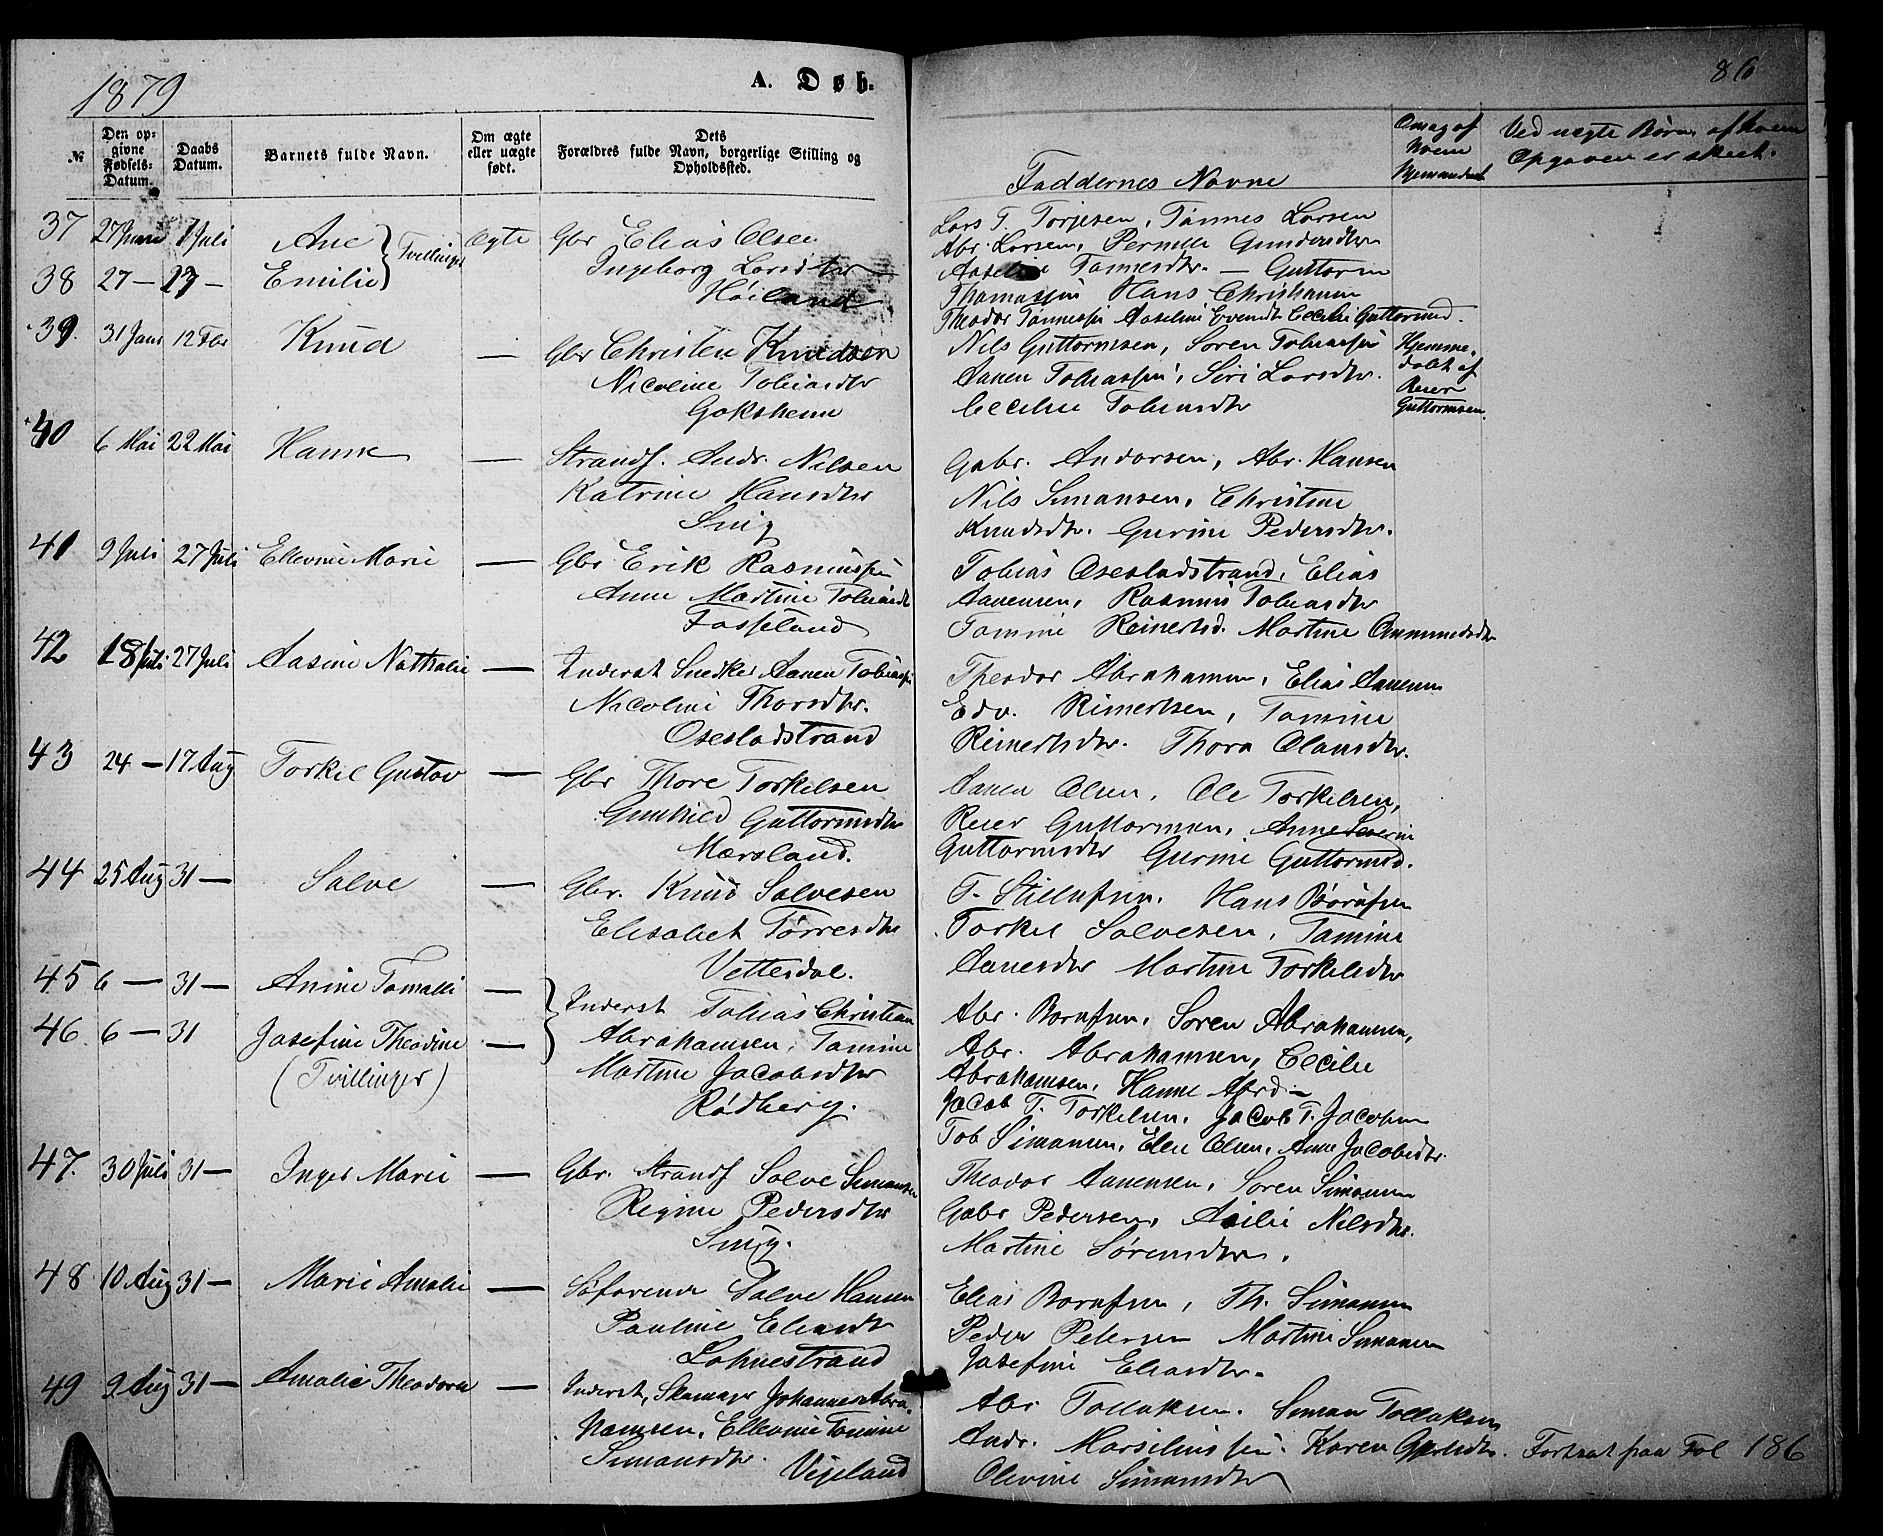 1879
A. Døb.
86
№
Den op-
givne
Fødsels-
Datum.
Daabs
Datum.
Barnets fulde Navn.
Om ægte
eller uægte
født.
Dets
Forældres fulde Navn, borgerlige Stilling og
Opholdssted.
Faddernes Navne
Ved uægte Børn af hvem
Opgaven er skeet.
37 27 Juni Juli Ane Tvillinger Ægte Gbr Elias Olsen
Ingeborg Larsdtr
38 27 — — Emilie
Høiland
Lars T. Torjesen, Tønnes Larsen
Abr. Larsen, Pernille Gundersdtr
Tønnesdtr. — Guttorm
Hans Christiansen
39. 31 Janr 12 Febr Knud — Gbr Christen Knudsen
Nicoline Tobiasdtr
Goksheim
Nils Guttormsen, Søren Tobiassen
Aanen Tobiassen, Siri Larsdtr.
Cecilie Tobiasdtr
Hjemme-
døbt af
Reier
Guttormsen.
40 6 Mai 22 Mai Hanne — Strands. Andr. Nilsen
Katrine Hansdtr
Snig
Gabr. Andersen, Abr. Hansen
Nils Simonsen, Christine
Knudsdtr. Gurine Pedersdtr.
41 9 Juli 27 Juli Ellevine Marie — Gbr Erik Rasmussen
Anne Martine Tobiasdt
Fasseland
Tobias Osestadstrand, Elias
Aanensen, Rasmus Tobiasdtr
Tomine Reinertsd. Martine
42 18 Juli 27 Juli Aasine Nathalie — Inderst Snedker Aanen Tobiassen
Nicoline Thorsdtr.
Osestadstrand
Theodor Abrahamsen, Elias Aanensen
Edv. Reinertsen, Tomine
Reinertsdtr. Thora Olausdtr.
43 24 — 17 Aug Torkel Gustav — Gbr Thore Torkelsen
Gunhild Guttormsdtr
Mæsland.
Aanen Olsen, Ole Torkelsen,
Reier Guttormsen, Anne Severine
Guttormsdtr Gurine Guttormsd.
44 25 Aug 31 — Salve — Gbr. Knud Salvesen
Elisabet Tørresdtr
Vettesdal.
Torkel Salvesen, Tomine
Aanensdtr Martine Torkelsdtr
45 6 — 31 — Anine Tomalie — Inderst Tobias Christian
Abrahamsen, Tomine
46. 6 — 31 Josefine Theodine —
(Tvillinger)
Martine Jacobsdtr
Rødberg.
Abr. Børufsen, Søren Abrahamsen,
Abr. Abrahamsen, Cecilie
Abrahamsen, Hanne
Jacob T. Torkelsen, Jacob T. Jacobsen
Tob Simonsen, Elen Olsen, Anne Jacobsdtr.
47. 30 Juli 31 — Inger Marie — Gbr. Strands Salve Simonsen
Regine Pedersdtr
Snig.
Theodor Aanensen, Søren Simonsen
Gabr Pedersen, Asilie Nilsdtr.
Martine Sørensdtr.
48 10 Aug 31 — Marie Amalie — Søfarende Salve Hansen
Pauline Eliasdtr
Lohnestrand
Elias Børufsen, Th. Simonsen
Peder Petersen Martine Simonsen
Josefine Eliasdtr.
49 9 Aug 31 — Amalie Theodora — Inderst, Skomager Johannes Abra-
hamsen, Ellevine Tomine
Simonsdtr. Vigeland
Abr Tollaksen. Simon Tollaksen
Andr. Marseliussen. Karen
Olevine Simonsdtr
Fortsat paa Fol 186